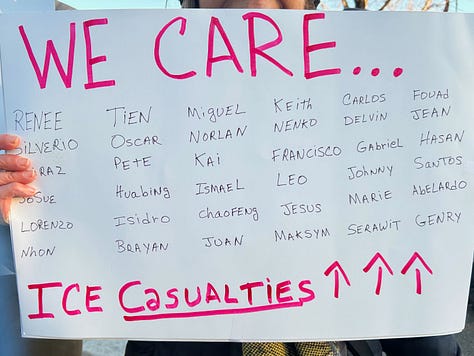 WE CARE...
RENEE TIEN MIGUEL KEITH CARLOS FOUAD
SILVERIO OSCAR NORLAN NENKO DELVIN JEAN
PETE KAI FRANCISCO GABRIEL HASAN
JOSUE HuabiNg ISMAEL LEO JOHNNY SANTOS
LORENZO Isidro ChaoFENg JESUS MARIE AbELARdO
NhoN BRAYAN JUAN MAKSYM SERAWIT GENRY
ICE CASUALTIES ↑ ↑ ↑